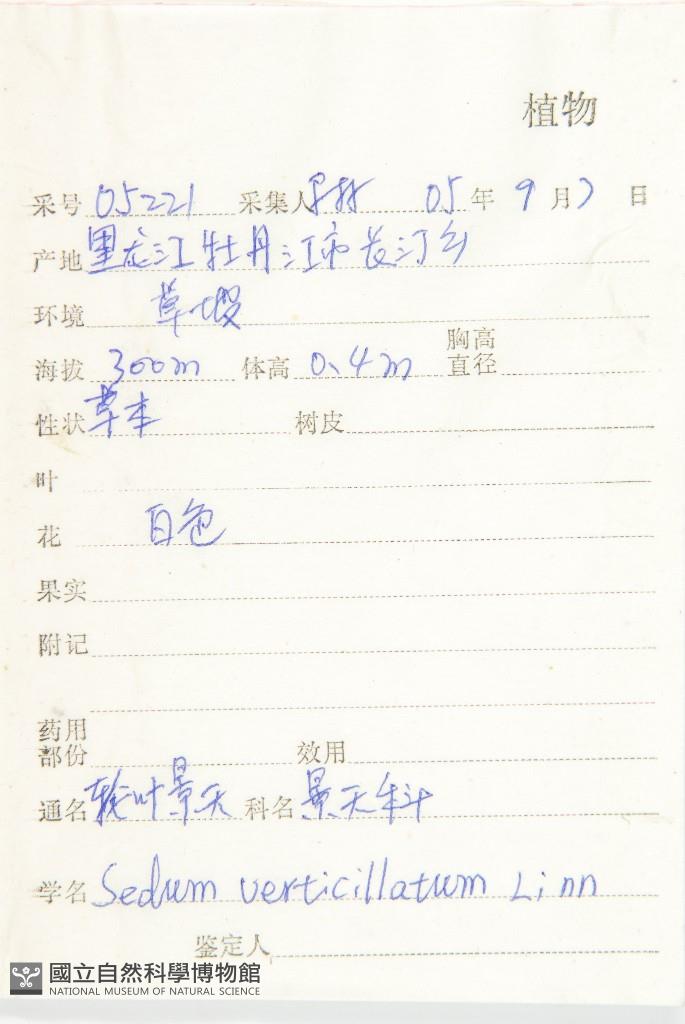 植物
采号 05221 采集人 05年9月7日
产地 黑龙江牡丹江市长汀乡
环境 草坡
海拔 300m 体高 0.4m 胸高直径
性状 草本 树皮
叶
花 白色
果实
附记
药用部份 效用
通名 轮叶景天 科名 景天科
学名 Sedum verticillatum Linn
鉴定人
國立自然科學博物館
NATIONAL MUSEUM OF NATURAL SCIENCE